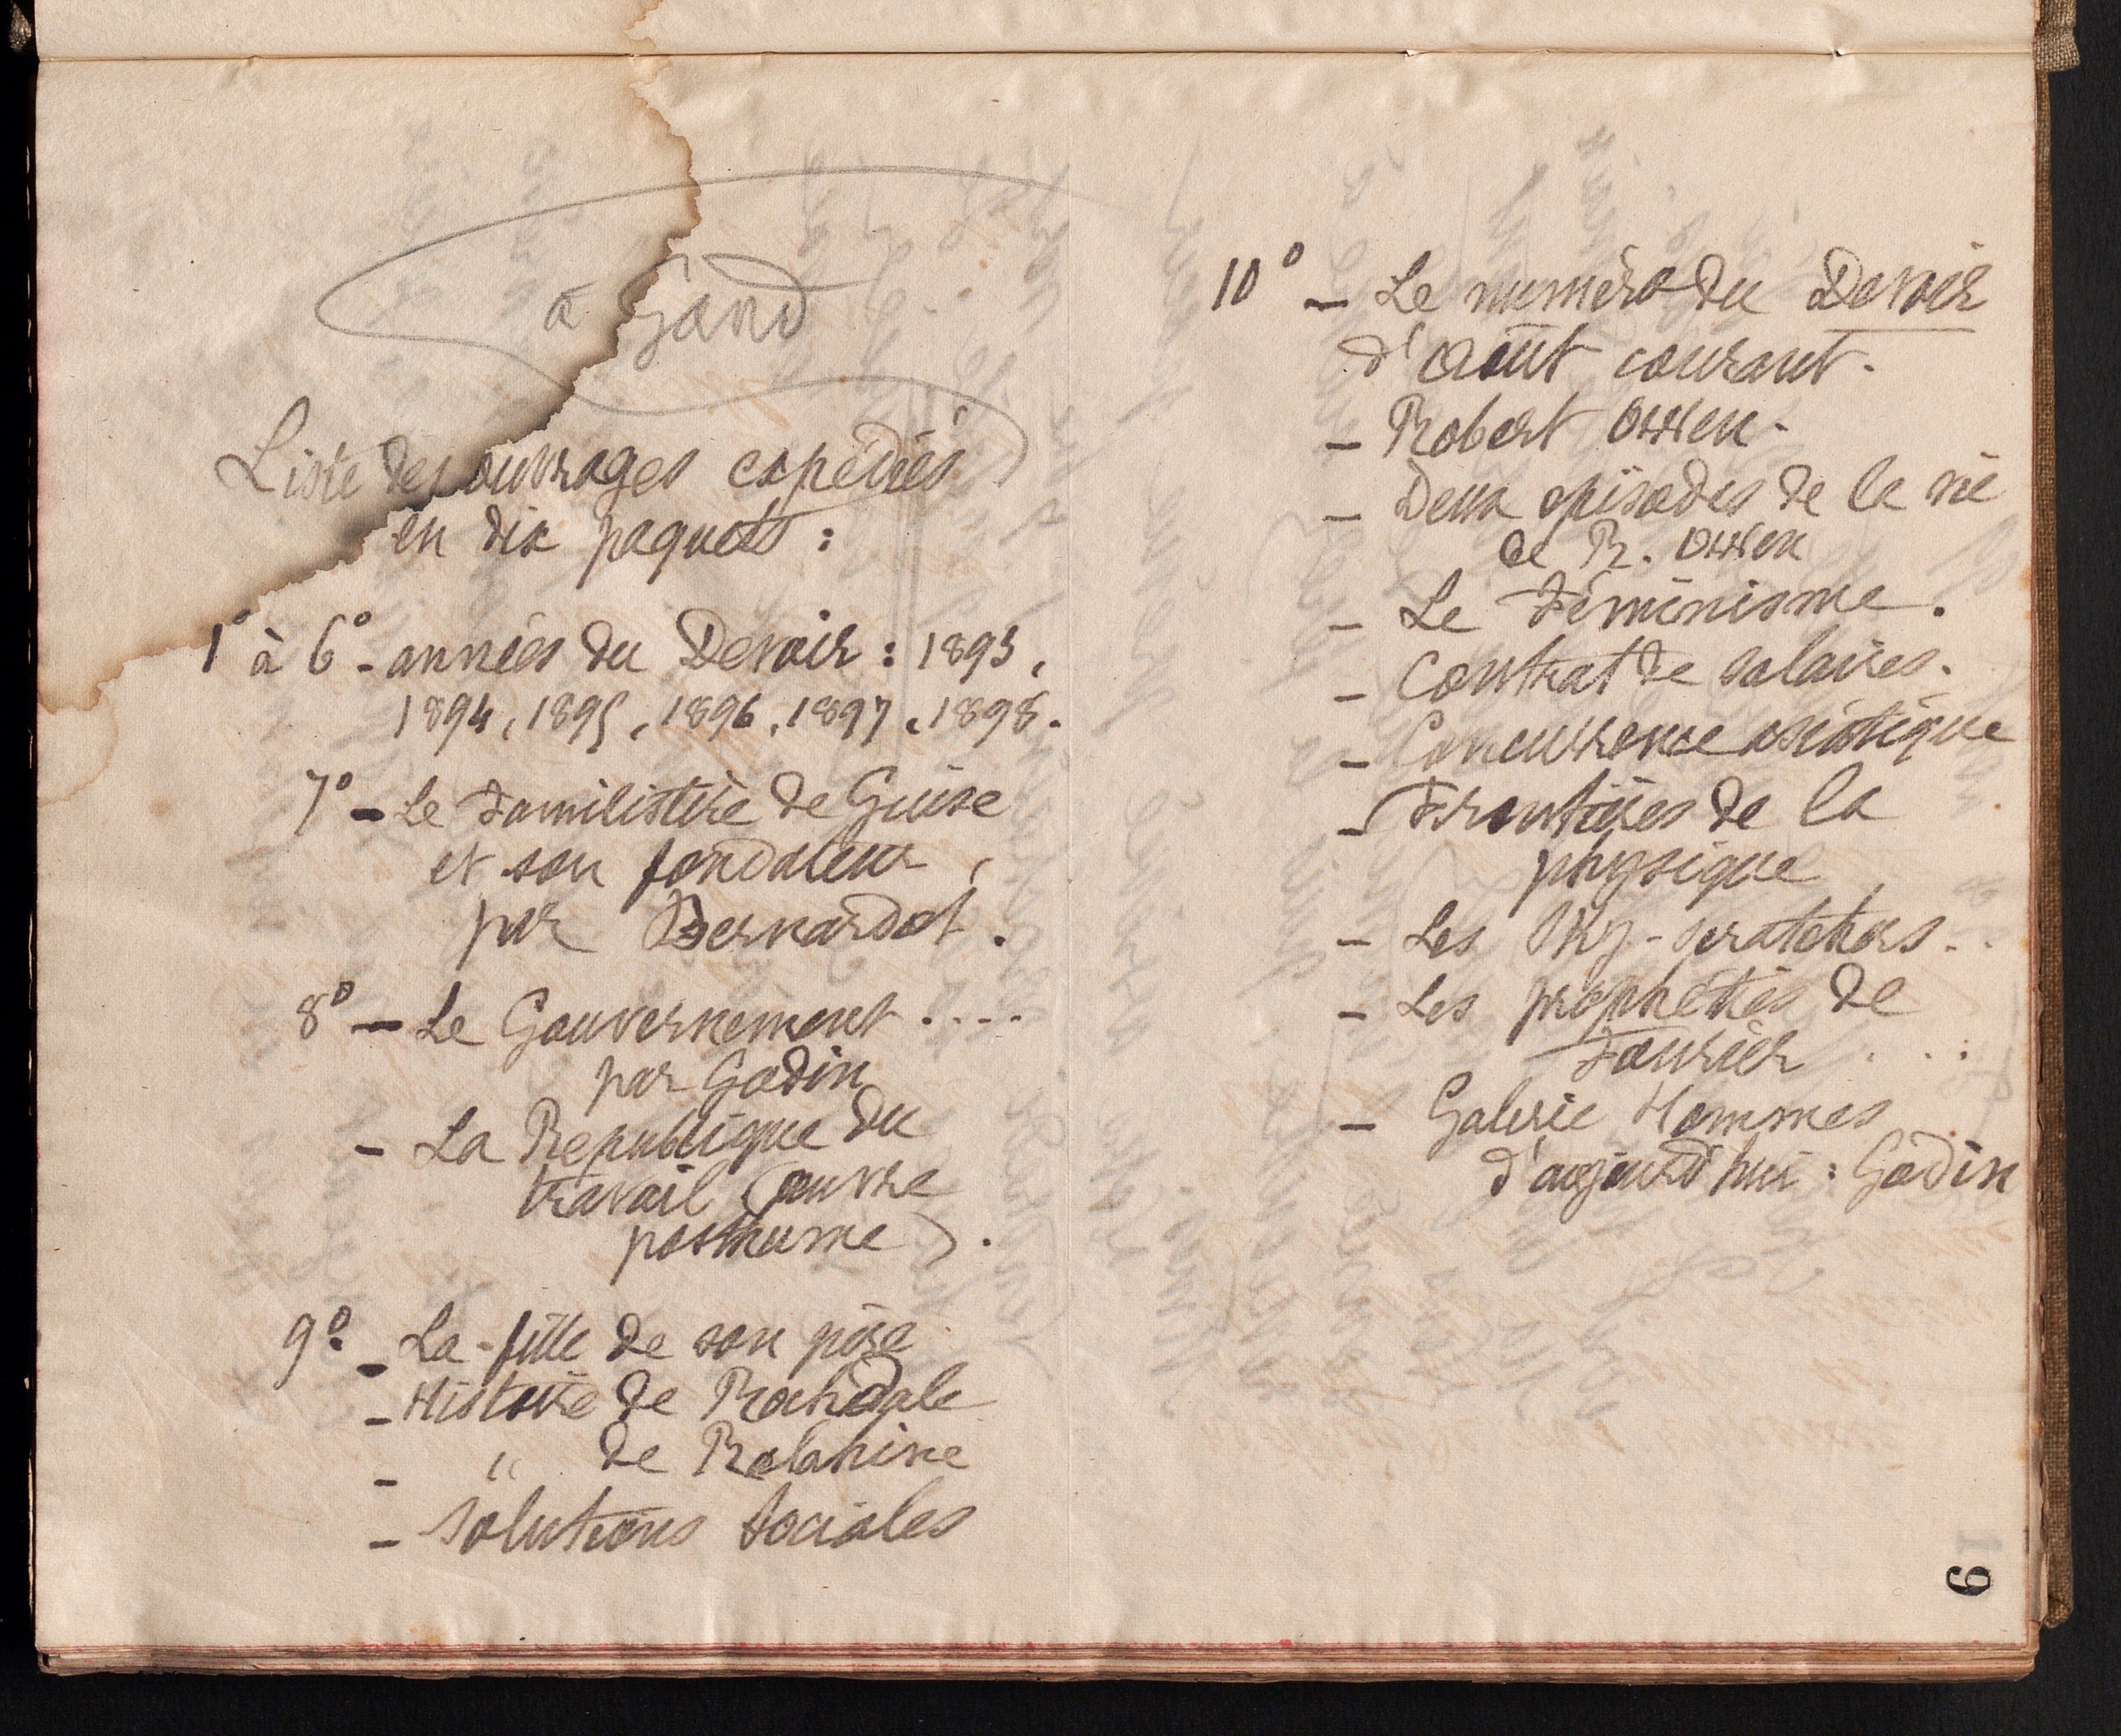 à Gand
Liste des ouvrages expédiés
en dix paquets :
1° à 6° - années du Devoir : 1893,
1894, 1895, 1896, 1897, 1898.
7° - Le Familistère de Guise
et son fondateur,
par Bernardot.
8° - Le Gouvernement ....
par Godin
- La République du
travail (œuvre
posthume).
9° - La fille de son père
- Histoire de Rochdale
- " de Ralahine
- Solutions Sociales
10° - Le numéro du Devoir
d'Août courant.
- Robert Owen.
- Deux épisodes de la vie
de R. Owen
- Le Féminisme.
- Contrat de salaires.
- Concurrence asiatique
- Frontières de la
physique
- Les Sky-scratchers..
- Les prophéties de
Fourier ...
- Galerie Hommes
d'aujourd'hui : Godin
6